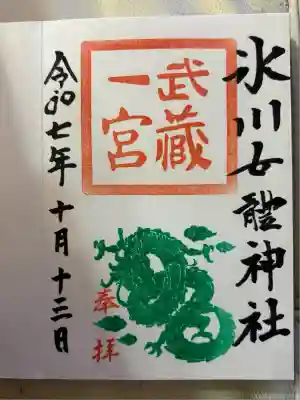 氷川女體神社
武藏
一宮
奉拝
令和七年十月十三日